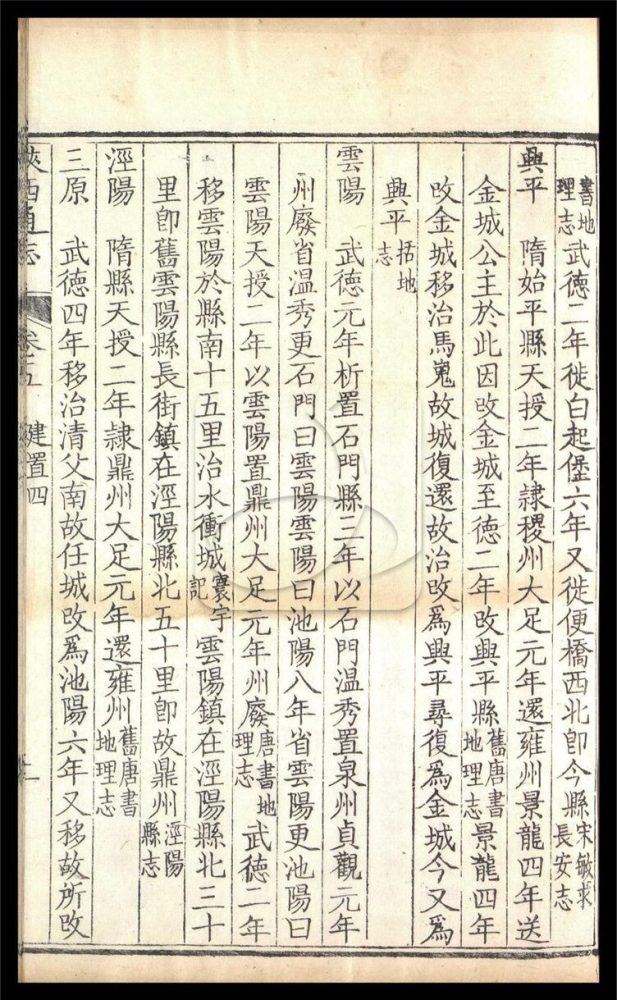 書地理志武德二年徙白起堡六年又徙便橋西北卽今縣宋敏求長安志
興平　隋始平縣天授二年隷稷州大足元年還雍州景龍四年送
金城公主於此因改金城至德二年改興平縣舊唐書地理志景龍四年
改金城移治馬嵬故城復還故治改爲興平尋復爲金城今又爲
興平括地志
雲陽　武德元年析置石門縣三年以石門溫秀置泉州貞觀元年
州廢省溫秀更石門曰雲陽雲陽曰池陽八年省雲陽更池陽曰
雲陽天授二年以雲陽置鼎州大足元年州廢唐書地理志武德二年
移雲陽於縣南十五里治水衝城寰宇記雲陽鎮在涇陽縣北三十
里卽舊雲陽縣長街鎮在涇陽縣北五十里卽故鼎州涇陽縣志
涇陽　隋縣天授二年隷鼎州大足元年還雍州舊唐書地理志
三原　武德四年移治清父南故任城改爲池陽六年又移故所改
陝西通志　卷五　建置四